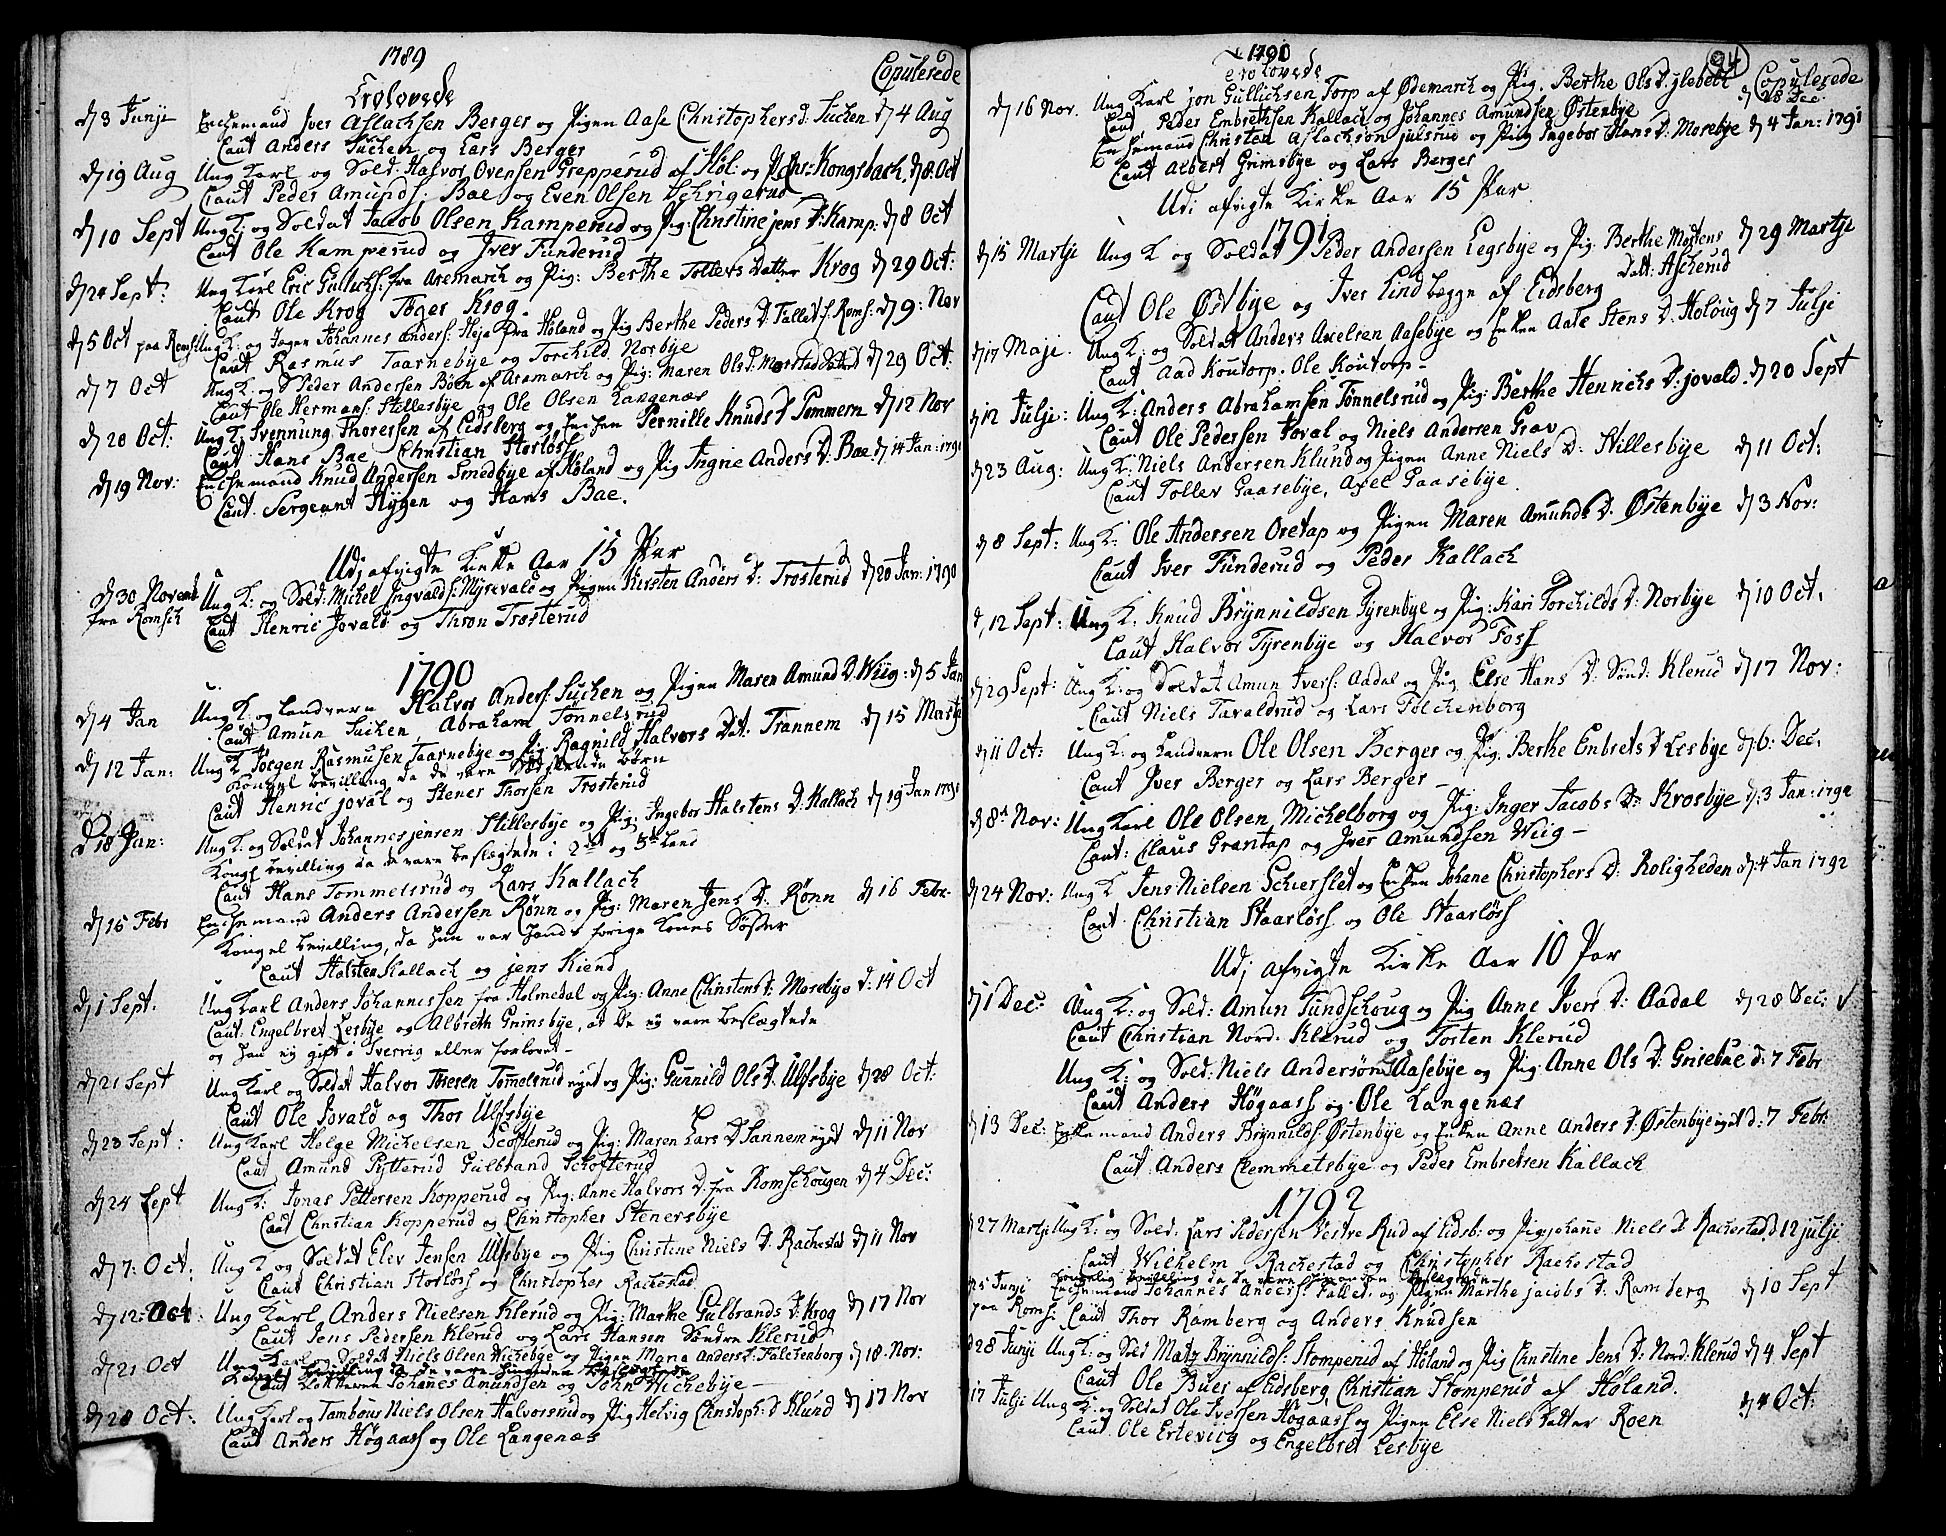 1789
Trolovede
Copulerede
d 3 Junji Enchemand Iver Aslachsen Berger og Pigen Aase Christophersd: Süchen d 4 Aug
Caut Anders Süchen og Lars Berger
d 19 Aug Ung Karl og Sold: Halvor Ovensen Grepperüd af Høl: og P: Kongsbach d 8 Oct
Caut Peder Amunds: Bae og Even Olsen Schrigerud
d 10 Sept Ung K: og Soldat Jacob Olsen Kamperud og Pig: Christine Jens D: Kamp: d 8 Oct
Caut Ole Kamperud og Iver Funderud
d 24 Sept: Ung Karl Eric Gulichs: fra Aremarch og Pig: Berthe Tollevs Datter Krog d 29 Oct:
Caut Ole Krog Toger Krog.
d 5 Oct paa Roms: Ung K: og Jæger Johannes Anders: Høje fra Høland og Pig Berthe Peders D: Fallet f. Roms: d 9: Nov
Caut Rasmus Taarnebye og Torchild Norbÿe
d 7 Oct Ung K: og S Peder Andersen Bøen af Aremarch og Pig: Maren Ols D: d 29 Oct:
Caut Ole Hermans: Stillesbye og Ole Olsen Langenæs
d 20 Oct: Ung K: Svennung Thoresen af Eidsberg og Enchen Pernille Knuds D Tommern d 12 Nov
Caut Hans Bae Christian Storløss
d 19 Nov: Enchemand Knud Andersen Smedbÿe af Høland og Pig Ingrie Anders D: Bae d 14 Jan: 1791
Caut. Sergeant Hÿgen og Hans Bae.
Udj afvigte Kirke Aar 15 Par
d 30 Novemb Ung K: og Sold: Michel Ingvalds: Mÿrevald og Pigen Kirsten Anders D: Trosterud d 20 Jan: 1790
fra Romsch Caut Henric Jovald og Thron Trosterud
1790
d 4 Jan Ung K: og Landvern Halvor Anders: Süchen og Pigen Maren Amund D: Wiig: d 5 Jan
Caut Amun Süchen, Abraham Tønnelsrud
d 12 Jan: Ung K Jørgen Rasmusen Taarnebye og Pig: Ragnild Halvors Dat: Trannem d 15 Martj
Kongel bevilling da de vare Sødskende børn
Caut Henric Joval og Stener Thorsen Trosterud
D 18 Jan: Ung K: og Soldat Johannes Jensen Stillesbÿe og Pig: Ingebor Halstens D: Kallach d 19 Jan 1791
Kongl bevilling da de vare beslægtede i 2det og 3die Led
Caut Hans Tommelsrud og Lars Kallach
d 15 Febr Enchemand Anders Andersen Rønn og Pig: Maren Jens D: Rønn d 16 Febr.
Kongel bevilling, da hun var hands forige Kones Søster
Caut Halsten Kallach og Jens Kiend
d 1 Sept. Ung Karl Anders Johannissen fra Holmedal og Pig: Anne Christens D: Mosebÿe d: 14 Oct
Caut: Engelbret Lesbÿe og Albreth Grimsbye, at de ej vare beslægtede
og han ej gift i Sverrig eller forlovet
d 21 Sept Ung Karl og Soldat Halvor Toresen Tomelsrud og Pig: Gunnild Ols D: Ulfsbÿe d 28 Oct:
Caut Ole Jovald og Thor Ulfsbÿe
d 23 Sept: Ung Karl Helge Michelsen Scofterud og Pig: Maren Lars D Sannem d 11 Nov
Caut Amund Pÿtterud Gulbrand Schofterud
d 24 Sept Ung K: Jonas Pettersen Kopperud og Pig: Anne Halvors D. fra Romschougen d 4 Dec:
Caut Christian Kopperud og Christopher Stenersbÿe
d 7: Oct: Ung K og Soldat Elev Jensen Ulfsbye og Pig Christine Niels D: Rachestad d 11 Nov
Caut Christian Storløss og Christopher Rachestad
d 12: Oct: Ung Karl Anders Nielsen Klerud og Pig: Marthe Gulbrands D: Krog d 17 Nov
Caut Jens Pedersen Klerud og Lars Hansen Søndre Klerud
d 21 Oct Ung Karl Soldat Niels Olsen Wichebye og Pigen Maria Anders D: Falchenborg d 18. Nov:
Kongel bevilling da de vare hinanden beslægtede
Caut Johanes Amundsen og John Wichebÿe
d 28 Oct: Ung Karl og Tambour Niels Olsen Halvorsrud og Pig Helvig Christoph: D: Klund d 17 Nov
Caut Anders Høgaass og Ole Langenæs
1790
Trolovede
94
Copulerede
d 16 Nov. Ung Karl Jon Gullichsen Torp af Ødemarch og Pig. Berthe Ols D: d 28 Dec:
Caut Peder Embrethsen Kallach og Johannes Amundsen Østenbÿe
Enchemand Christen Aslachson Julsrud og Pig Ingebor Hans D: Mosebÿe d 4 Jan: 1791
Caut Albert Grimsbÿe og Lars Berger
Udi afvigte Kirke Aar 15 Par.
1791
d 15 Martji Ung K og Soldat Peder Andersen Eegsbÿe og Pig. Berthe Mortens Datt: Ascherud d 29 Martje
Caut Ole Østbÿe og Iver Lind begge af Eidsberg
d 17 Maji. Ung K: og Soldat Anders Axelsen Aasebÿe og Enken Aase Stens D: Holoug d 7 Julji
Caut Aad Koutorp. Ole Koutorp
d 12 Julji: Ung K: Anders Abrahamsen Tønnelsrud og Pig: Berthe Henrichs D: Jovald. d 20 Sept
Caut Ole Pedersen Joval og Niels Andersen Grav
d 23 Aug: Ung K: Niels Andersen Klund og Pigen Anne Niels D: Stillesbÿe d 11 Oct:
Caut Tollev Gaasebÿe, Axel Gaasebÿe.
d 8 Sept: Ung K: Ole Andersen Oretap og Pigen Maren Amunds D. Østenbÿe d 3 Nov:
Caut Iver Funderud og Peder Kallach
d, 12 Sept: Ung K: Knud Brÿnnildsen Tÿrenbÿe og Pig: Kari Torchilds D: Norbÿe d 10 Oct.
Caut Halvor Tÿrenbÿe og Halvor Foss
d 29 Sept: Ung K: og Soldat Amun Ivers: Aadal og Pig Else Hans D: Sønd: Klerud d 17 Nov:
Caut Niels Tavaldsrud og Lars Folchenborg
d 11 Oct: Ung K: og Landvern Ole Olsen Berger og Pig: Berthe Enbrets D Lesbÿe d: 6: Dec:
Caut Iver Berger og Lars Berger
d 8de Nov: Ung Karl Ole Olsen Michelborg og Pig: Inger Jacobs D: Krosbÿe d: 3 Jan: 1792
Caut: Claus Grantap og Iver Amundsen Wiig
d 24 Nov: Ung K Jens Nielsen Schierslet og Enken Johane Christophers D: Roligheden d: 4 Jan 1792
Caut Christian Staarløss og Ole Staarløss
Udj afvigte Kirke Aar 10 Par
d 1 Dec: Ung K: og Sold: Amun Tundschoug og Pig Anne Ivers D: Aadal d 28 Dec:
Caut Christian Nord. Klerud og Tosten Klerud
Ung K: og Sold: Niels Andersøn Aasebye og Pig: Anne Ols D: Grisebue d: 7 Febr
Caut Anders Høgaass og Ole Langenæs
d 13 Dec: Enkemand Anders Brÿnnilds: Østenbÿe og Enken Anne Anders D: Østenbÿe d: 7 Febr:
Caut: Anders Clemmetsbye og Peder Embretsen Kallach
1792
d 27 Martji Ung K: og Sold: Lars Pedersen Vestre Rud af Eidsb: og Pig Johane Niels D Rachestad d 12 Julji
Caut Wilhelm Rachestad og Christopher Rachestad
Kongelig bevilling da de vare hinanden beslægtede
d 25 Junji Enchemand Johannes Anders: Fallet og Pigen Marthe Jacobs D: Ramberg d 10 Sept
paa Roms: Caut Thor Ramberg og Anders Knudsen
d 28 Junji Ung K: og Sold Matz Brÿnnilds: Stomperud af Høland og Pig Christine Jens D: Nord: Klerud d 4 Sept
Caut Ole Buer af Eidsberg Christian Stomperud af Høland.
d 17 Julji Ung K: og Soldat Ole Iversen Høgaass og Pigen Else Niels Datter Roen d 4 Oct:
Caut. Ole Ertevug og Engelbret Lesbÿe